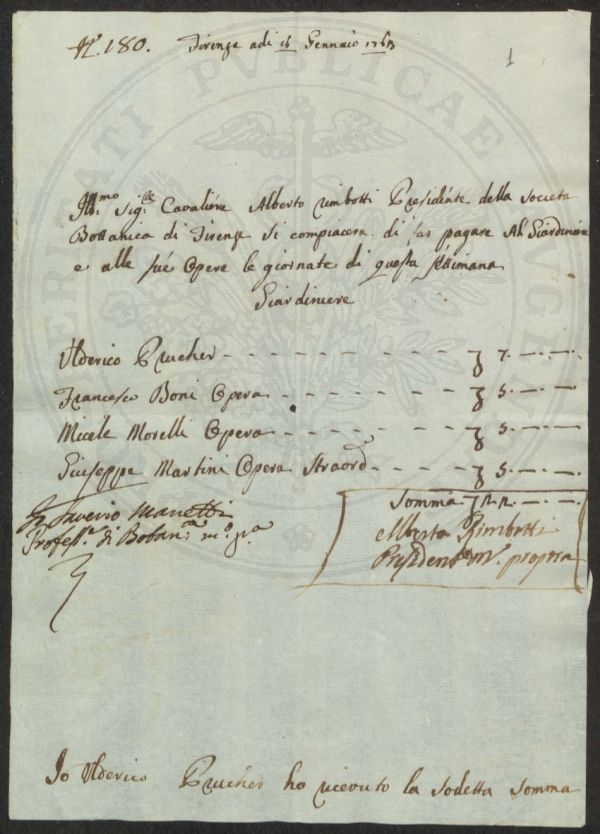 N. 180. Firenze adi 15 Gennaio 1763
1
Ill:mo Sig:re Cavaliere Alberto Rimbotti Presidente della Società
Bottanica di Firenze si compiacerà di far pagare Al Giardiniere
e alle sue Opere le giornate di questa settimana
Giardiniere
Ulderico Prucher - - - - - - - - - - 7. — . —
Francesco Boni Opera - - - - - - - 5. — . —
Micele Morelli Opera - - - - - - - 5. — . —
Giuseppe Martini Opera Straord.a - - - 5. — . —
Somma 22. — . —
Saverio Manetti
Profess.e di Botan.ca m.o p.a
Alberto Rimbotti
Presidente m.o propria
Io Ulderico Prucher ho riceuto la sodetta somma